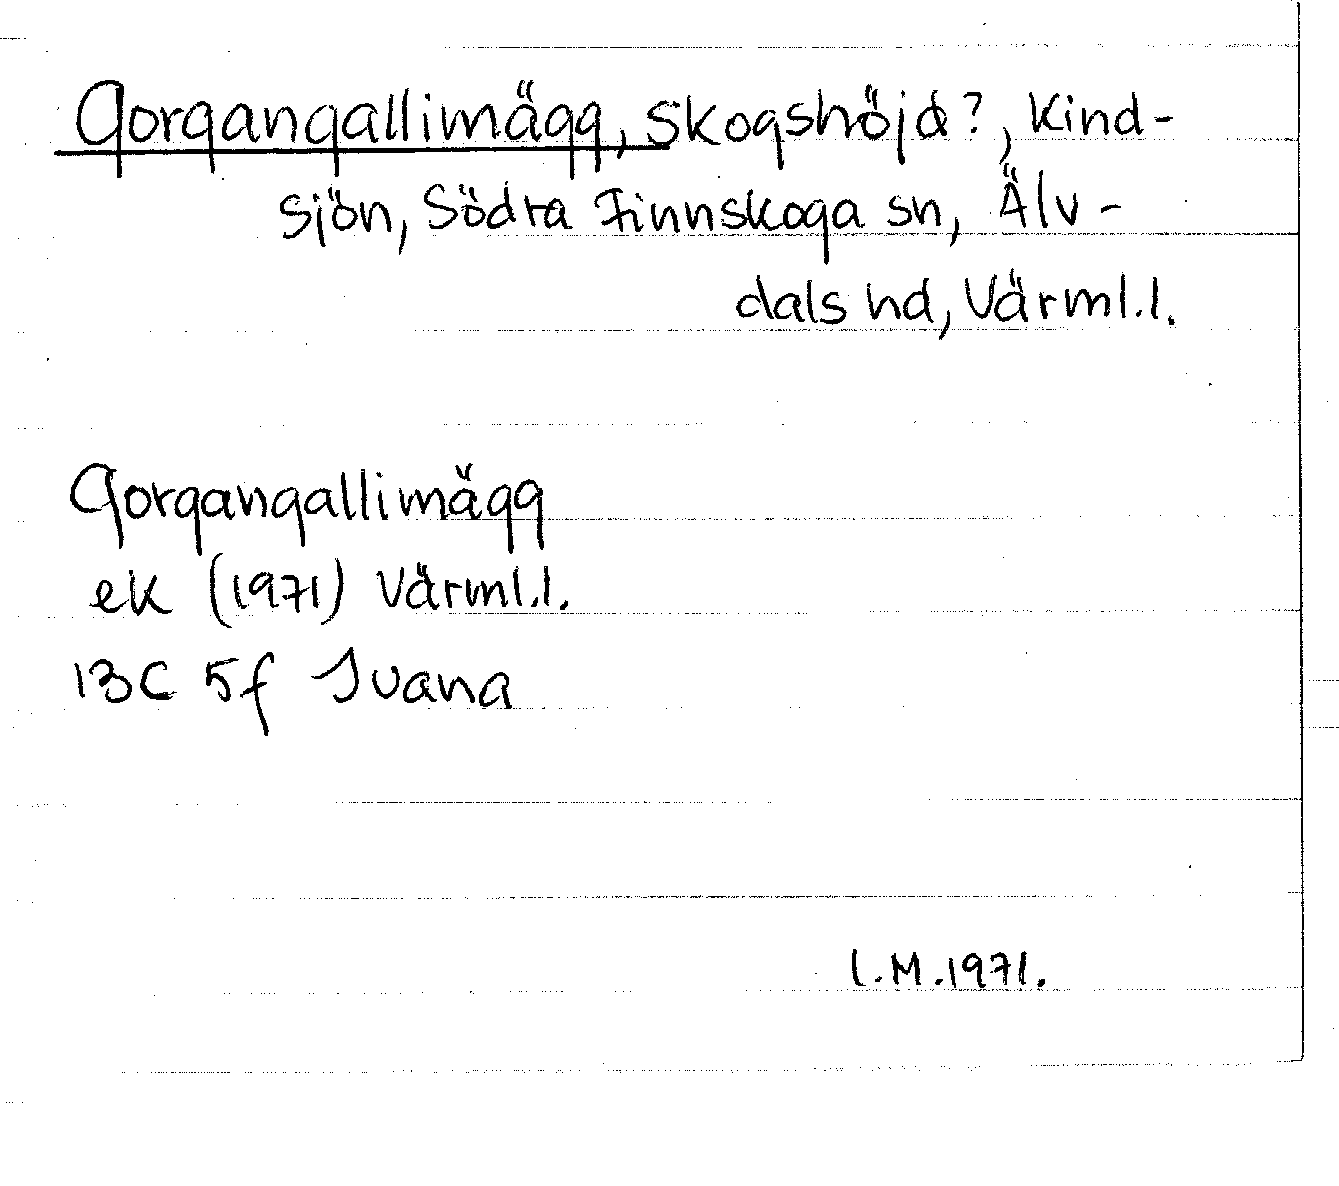 Gorgangallimägg, skogshöjd?, Kind-
sjön, Södra Finnskoga sn, Älv-
dals hd, Värml.l.
Gorgangallimägg
ek (1971) Värml.l.
13C 5f Ivana
L.M.1971.